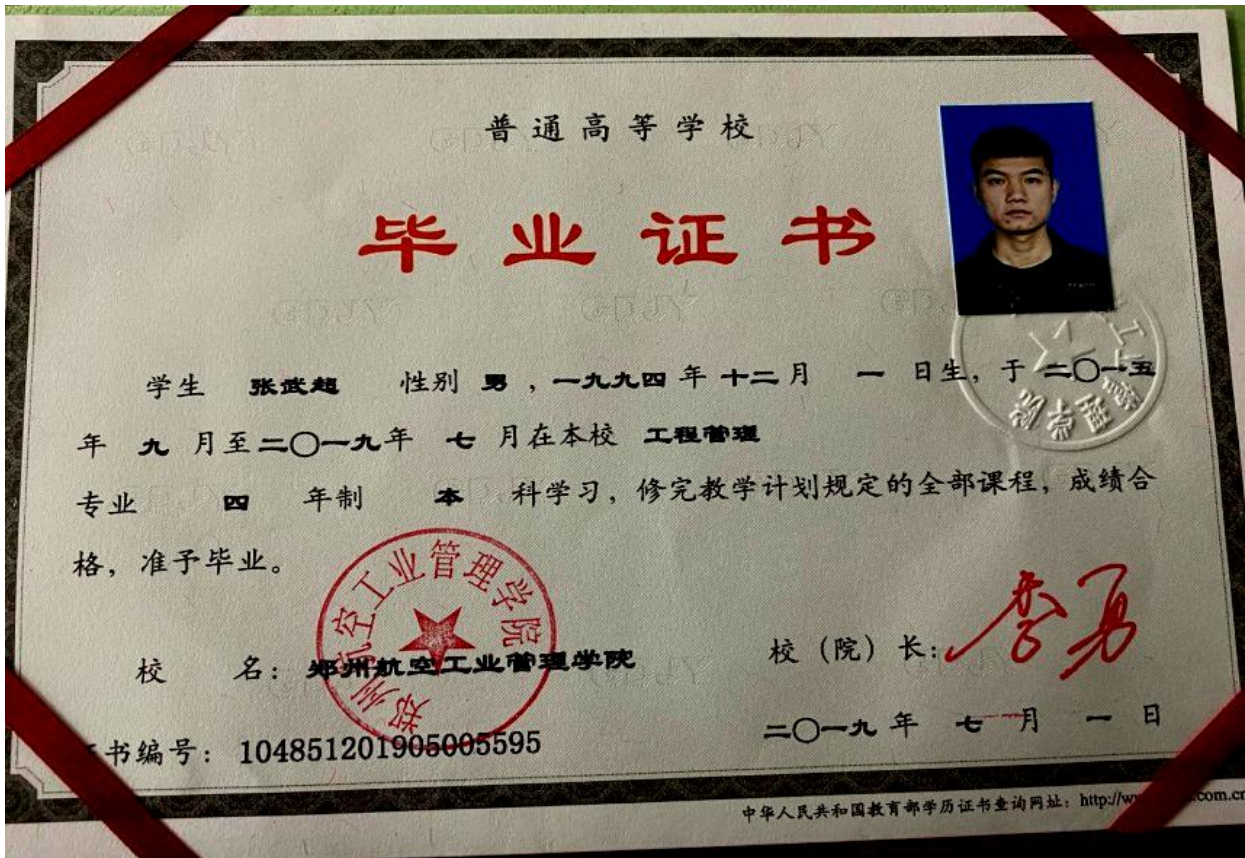 普通高等学校
毕业证书
学生 张武超 性别 男，一九九四年十二月 一 日生，于二〇一五
年 九 月至二〇一九年 七 月在本校 工程管理
专业 四 年制 本 科学习，修完教学计划规定的全部课程，成绩合
格，准予毕业。
郑州航空工业管理学院
校 名：郑州航空工业管理学院
校（院）长：李勇
二〇一九年 七 月 一 日
书编号：104851201905005595
中华人民共和国教育部学历证书查询网址：http://w com.cn